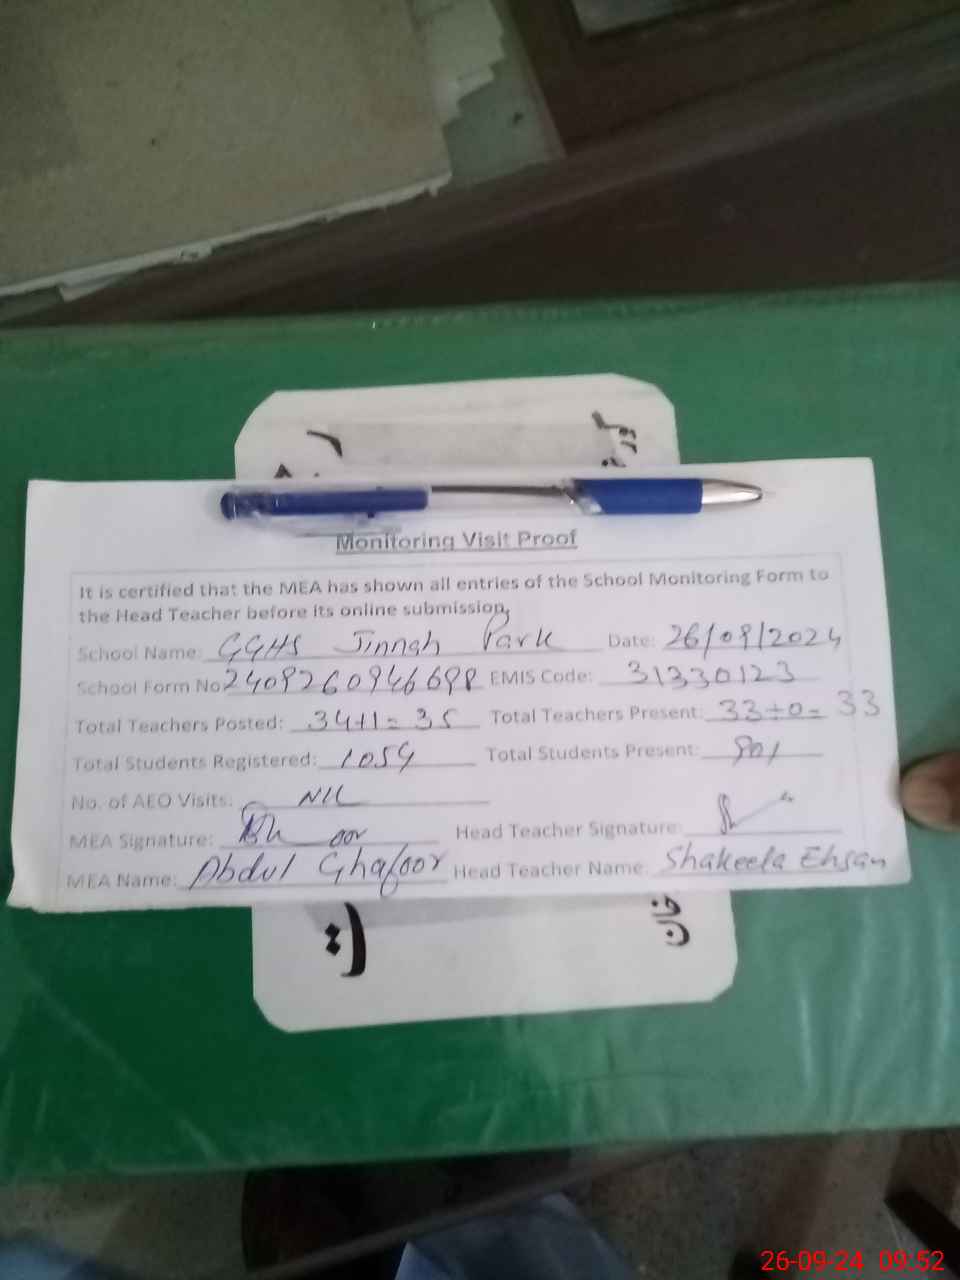 Monitoring Visit Proof
It is certified that the MEA has shown all entries of the School Monitoring Form to
the Head Teacher before its online submission.
School Name: GGHS Jinnah Park Date: 26/09/2024
School Form No 240926094669 EMIS Code: 31330123
Total Teachers Posted: 34+1= 35 Total Teachers Present: 33+0= 33
Total Students Registered: 1054 Total Students Present: 801
No. of AEO Visits: Nil
MEA Signature: Head Teacher Signature:
MEA Name: Abdul Ghafoor Head Teacher Name: Shakeela Ehsan
26-09-24 09:52